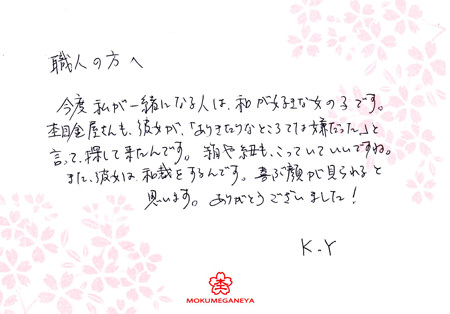 職人の方へ
今度私が一緒になる人は、和が好きな女の子です。
杢目金屋さんも、彼女が、「ありきたりなところでは嫌だった」と
言って、探して来たんです。箱や紐も、こっていていいですね。
また、彼女は和裁をするんです。喜ぶ顔が見られると
思います。ありがとうございました!
K.Y
杢
MOKUMEGANEYA